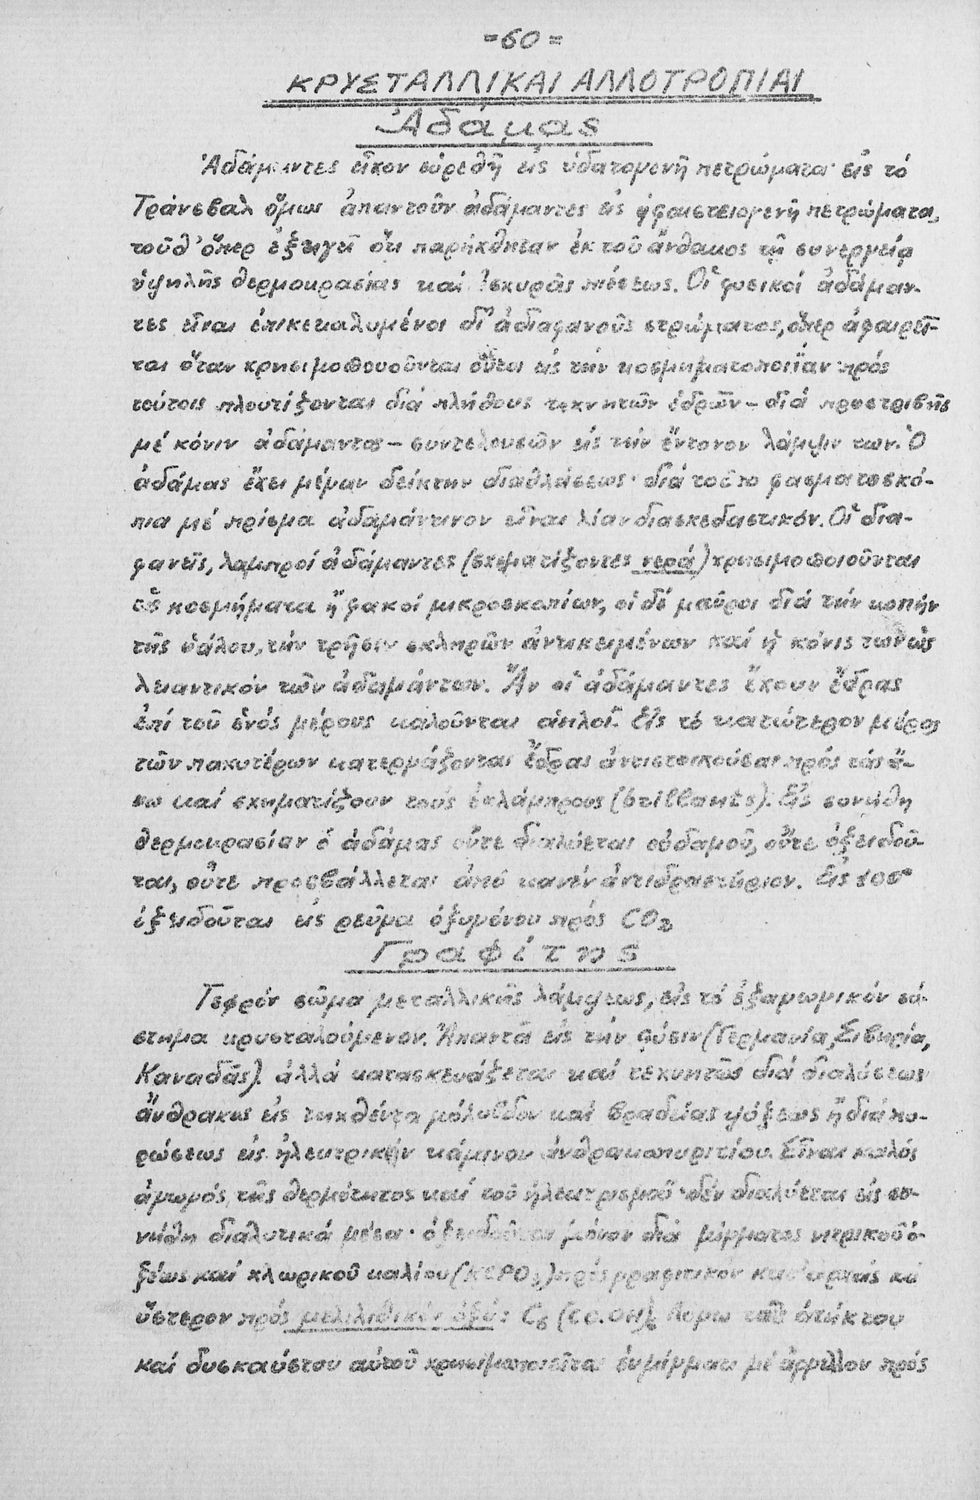 =60=
ΚΡΥΣΤΑΛΛΙΚΑΙ ΑΛΛΟΤΡΟΠΙΑΙ
Ἀδάμας
Ἀδάμαντες εἶχον εὑρεθῆ εἰς ὑδατογενῆ πετρώματα· εἰς τό
Τράνσβαλ ὅμως ἀπαντοῦν ἀδάμαντες εἰς ἡφαιστειογενῆ πετρώματα,
τοῦθ' ὅπερ ἐξηγεῖ ὅτι παρήχθησαν ἐκ τοῦ ἄνθακος τῇ συνεργείᾳ
ὑψηλῆς θερμοκρασίας καί ἰσχυρᾶς πιέσεως. Οἱ φυσικοί ἀδάμαν-
τες εἶναι ἐπικεκαλυμένοι δι' ἀδιαφανοῦς στρώματος, ὅπερ ἀφαιρεῖ-
ται ὅταν χρησιμοποιοῦνται οὗτοι εἰς τήν κοσμηματοποιΐαν πρός
τούτοις πλουτίζονται διά πλήθους τεχνητῶν ἑδρῶν – διά προστριβῆς
μέ κόνιν ἀδάμαντος – συντελουσῶν εἰς τήν ἔντονον λάμψιν των. Ὁ
ἀδάμας ἔχει μέγαν δείκτην διαθλάσεως· διά τοῦτο φασματοσκό-
πια μέ πρίσμα ἀδαμάντινον εἶναι λίαν διασκεδαστικόν. Οἱ δια-
φανεῖς, λαμπροί ἀδάμαντες (σχηματίζοντες νερά) χρησιμοποιοῦνται
ὡς κοσμήματα ἤ φακοί μικροσκοπίων, οἱ δέ μαῦροι διά τήν κοπήν
τῆς ὑάλου, τήν τρῆσιν σκληρῶν ἀντικειμένων καί ἡ κόνις των ὡς
λειαντικόν τῶν ἀδαμάντων. Ἄν οἱ ἀδάμαντες ἔχουν ἕδρας
ἐπί τοῦ ἑνός μέρους καλοῦνται ἁπλοῖ. Εἰς τό κατώτερον μέρος
τῶν παχυτέρων κατεργάζονται ἕδραι ἀντιστοιχοῦσαι πρός τάς ἄ-
νω καί σχηματίζουν τούς ἐκλάμπρους (brillants). Εἰς συνήθη
θερμοκρασίαν ὁ ἀδάμας οὔτε διαλύεται οὐδαμοῦ, οὔτε ὀξειδοῦ-
ται, οὔτε προσβάλλεται ἀπό κανέν ἀντιδραστήριον. Εἰς
ὀξειδοῦται εἰς ρεῦμα ὀξυγόνου πρός CO₂,
Γραφίτης
Τεφρόν σῶμα μεταλλικῆς λάμψεως, εἰς τό ἑξαγωνικόν σύ-
στημα κρυσταλούμενον. Ἀπαντᾶ εἰς τήν φύσιν (Γερμανία, Σιβηρία,
Καναδᾶς). ἀλλά κατασκευάζεται καί τεχνητῶς διά διαλύσεως
ἄνθρακος εἰς τηχθέντα μόλυβδον καί βραδείας ψύξεως ἤ διά πυ-
ρώσεως εἰς ἠλεκτρικήν κάμινον ἀνθρακοπυριτίου. Εἶναι καλός
ἀγωγός τῆς θερμότητος καί τοῦ ἠλεκτρισμοῦ· δέν διαλύεται εἰς συ-
νήθη διαλυτικά μέσα· ὀξειδοῦται μόνον διά μίγματος νιτρικοῦ ὀ-
ξέως καί χλωρικοῦ καλίου πρός γραφιτικόν κατ' ἀρχάς καί
ὕστερον πρός μελιλιθικόν ὀξύ: C₆ (CO.OH)₆ Λόγω τοῦ ἀτήκτου
καί δυσκαύστου αὐτοῦ χρησιμοποιεῖται ἐν μίγματι μέ ἄργιλλον πρός